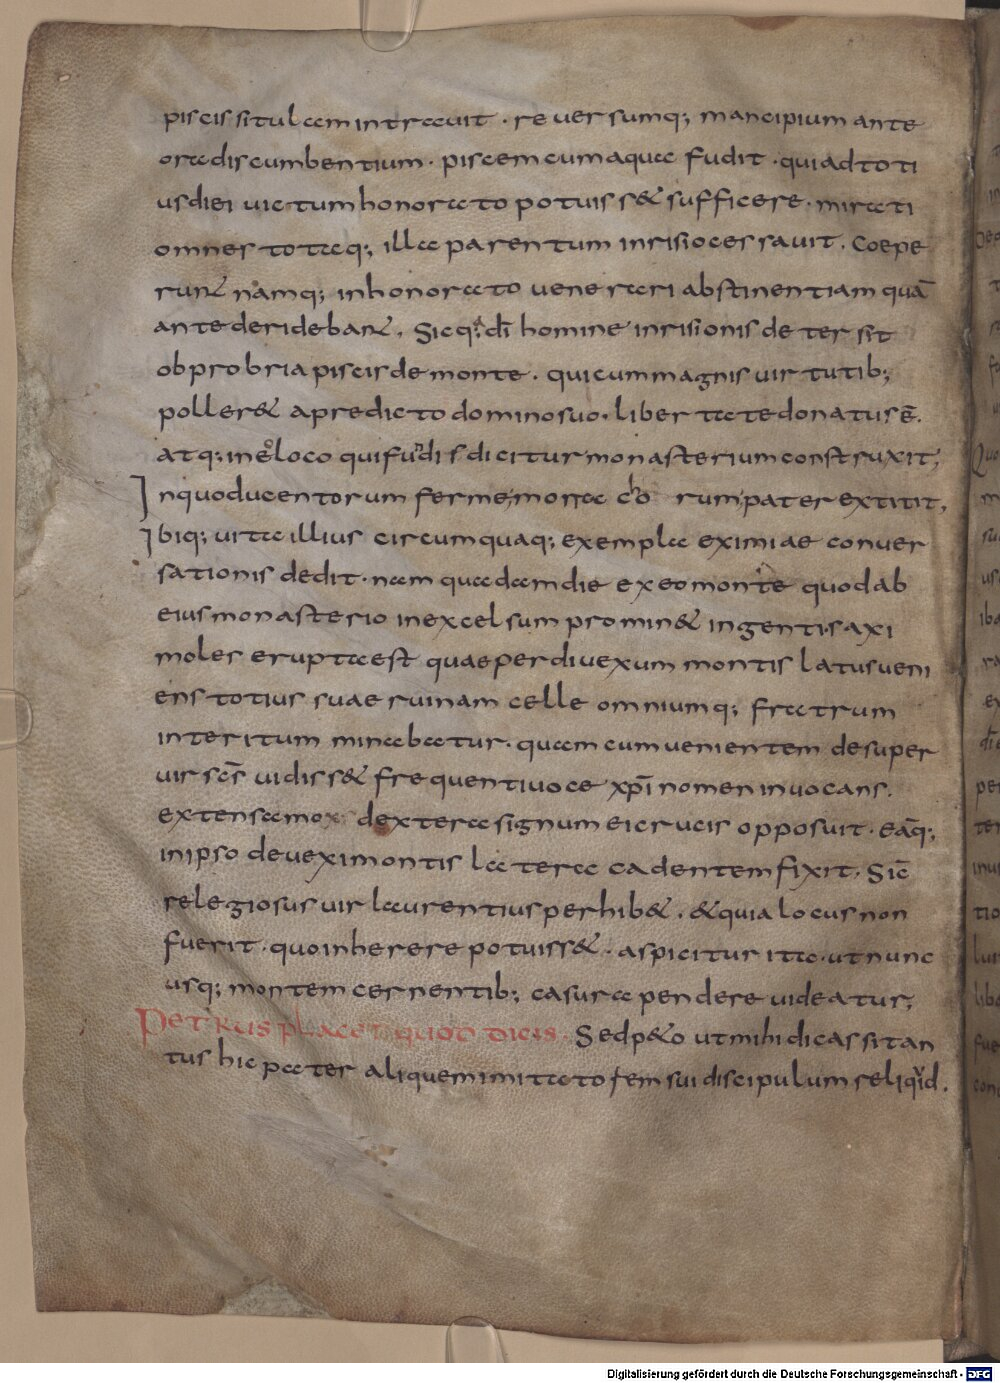 piscis situlam intrauit · reuersumq; mancipium ante
ora discumbentium · piscem cum aqua fudit · qui ad toti
us diei uictum honorato potuiss& sufficere · mirati
omnes totaq; illa parentum inrisio cessauit . Coepe
run& namq; in honorato venerari abstinentiam quā
ante deridebant . Sicq; dī homine inrisionis deter sit
obprobria piscis de monte . qui cum magnis uirtutib;
poller& a predicto domino suo . libertate donatus ē .
atq; in eo loco qui fundis dicitur monasterium construxit,
In quo ducentorum ferme monacho rum pater extitit,
Ibiq; uita illius circumquaq; exempla eximiae conuer
sationis dedit · nam quadam die ex eo monte quod ab
eius monasterio in excelsum promin& ingenti saxi
moles erupta est quae per diuexum montis latus ueni
ens totius suae ruinam celle omniumq; fratrum
interitum minabatur · quam cum uenientem desuper
uir scs̄ uidiss& frequenti uoce xp̄i nomen inuocans .
extensa mox dextera signum ei crucis opposuit · eāq;
in ipso deuexi montis latere cadentem fixit . Sic̄
relegiosus uir laurentius perhib& . & quia locus non
fuerit · quo inherere potuiss& · aspicitur ita · ut nunc
usq; montem cernentib; casura pendere uideatur;
Petrus placet quod dicis · Sed p&o ut mihi dicas si tan
tus hic pater aliquem imitatorem sui discipulum reliqᵛid .
Digitalisierung gefördert durch die Deutsche Forschungsgemeinschaft - DFG